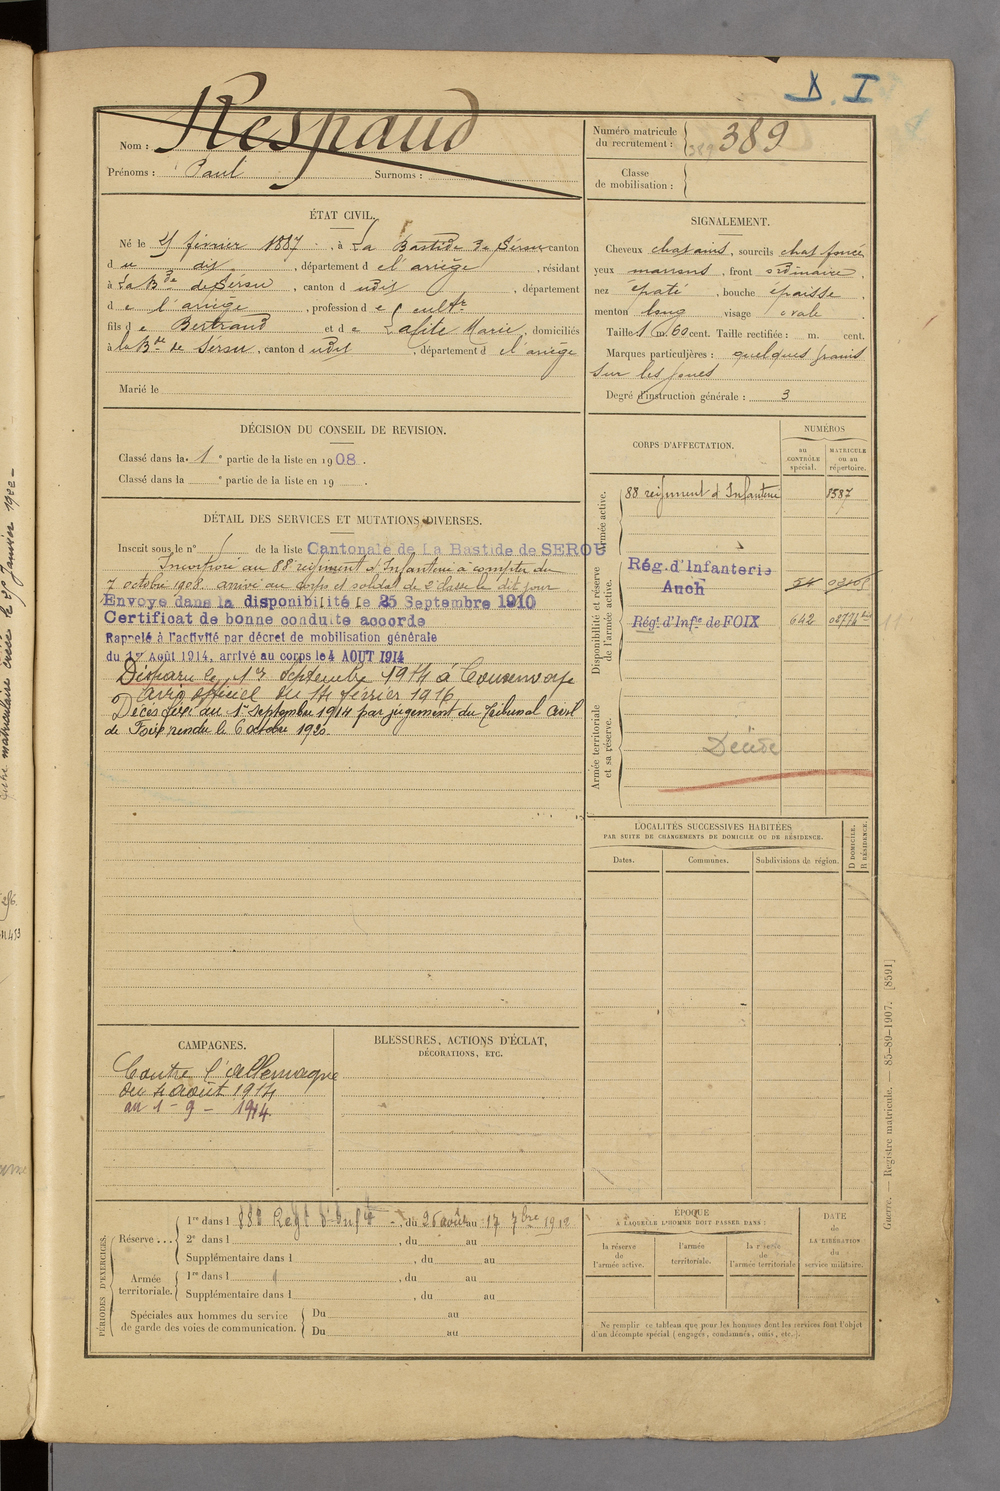 D. I
Nom : Respaud
Prénoms : Paul Surnoms :
Numéro matricule du recrutement : 389
Classe de mobilisation :
ÉTAT CIVIL.
Né le février 1887, à La Bastide de Sérou canton
d u dit, département d e l'ariège, résidant
à La Bde de Sérou, canton d udit, département
d e l'ariège, profession d e cultr
fils d e Bertrand et d e Lafite Marie, domiciliés
à la Bde de Sérou, canton d udit, département d e l'ariège
Marié le
SIGNALEMENT.
Cheveux chatains, sourcils chat foncé
yeux marrons, front ordinaire,
nez épaté, bouche épaisse,
menton long visage ovale
Taille 1 m. 60 cent. Taille rectifiée : m. cent.
Marques particulières : quelques grains
sur les joues
Degré d'instruction générale : 3
DÉCISION DU CONSEIL DE REVISION.
Classé dans la 1e partie de la liste en 1908.
Classé dans la e partie de la liste en 19 .
DÉTAIL DES SERVICES ET MUTATIONS DIVERSES.
Inscrit sous le n° de la liste Cantonale de La Bastide de SEROU
Incorporé au 88 régiment d'Infanterie à compter du
7 octobre 1908. arrivé au corps et soldat de 2e classe le dit jour
Envoyé dans la disponibilité le 25 Septembre 1910
Certificat de bonne conduite accordé
Rappelé à l'activité par décret de mobilisation générale
du 1er Août 1914, arrivé au corps le 4 AOUT 1914
Disparu le 1er Septembre 1914 à
avis officiel du 14 février 1916
Décès fixé au 1er Septembre 1914 par jugement du Tribunal Civil
de Foix rendu le 6 octobre 1920.
CORPS D'AFFECTATION.
NUMÉROS
au CONTRÔLE spécial.
MATRICULE ou au répertoire.
Armée active.
88 régiment d'Infanterie 8587
Disponibilité et réserve de l'armée active.
Rég. d'Infanterie
Auch
Régt d'Infie de FOIX 642
Armée territoriale et sa réserve.
Décédé
LOCALITÉS SUCCESSIVES HABITÉES
PAR SUITE DE CHANGEMENTS DE DOMICILE OU DE RÉSIDENCE.
Dates. Communes. Subdivisions de région. D DOMICILE. R RÉSIDENCE.
CAMPAGNES.
Contre l'Allemagne
du 4 août 1914
au 1 - 9 - 1914
BLESSURES, ACTIONS D'ÉCLAT,
DÉCORATIONS, ETC.
PÉRIODES D'EXERCICES.
Réserve...
1re dans l 88e Regt d'Infie, du 26 août au 17 7bre 1912
2e dans l , du au
Supplémentaire dans l , du au
Armée territoriale.
1re dans l , du au
Supplémentaire dans l , du au
Spéciales aux hommes du service de garde des voies de communication.
Du au
Du au
ÉPOQUE
À LAQUELLE L'HOMME DOIT PASSER DANS :
la réserve de l'armée active.
l'armée territoriale.
la réserve de l'armée territoriale
DATE de LA LIBÉRATION du service militaire.
Ne remplir ce tableau que pour les hommes dont les services font l'objet
d'un décompte spécial (engagés, condamnés, omis, etc.).
Guerre. — Registre matricule. — 85-89-1907. [8591]